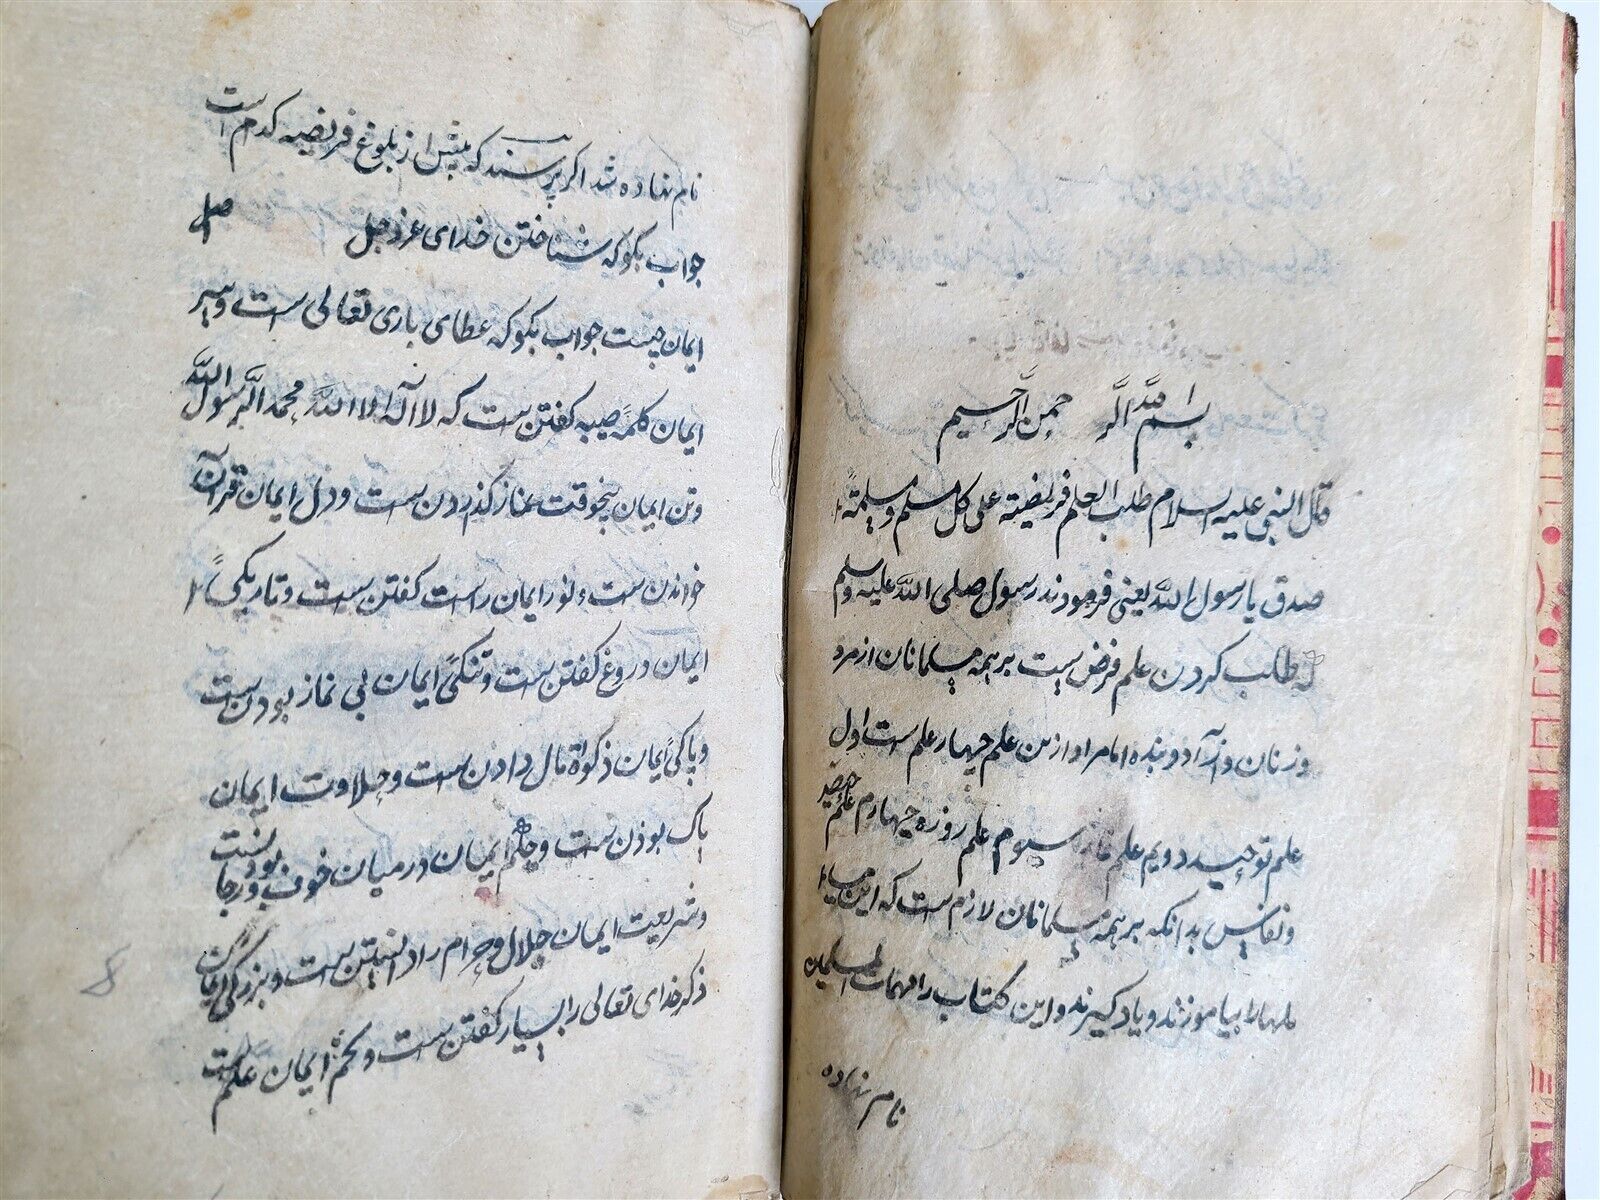 بسم الله الرحمن الرحیم
قال النبی علیه السلام طلب العلم فریضیته علی کل مسلم ومسلمة
صدق یا رسول الله یعنی فرمودند رسول صلی الله علیه وسلم
که طلب کردن علم فرض ست بر همه مسلمانان از مرد
و زنان و از آد و بنده اما مراو ازین علم چهار علم ست اول
علم توحید دویم علم نماز سیوم علم روزه چهارم علم حیض
ونفاس بدانکه بر همه مسلمانان لازم ست که این مساء
ملهارا بیاموزند و یاد کیرند و این کتاب را مهمات المسلمان
نام نهاده
نام نهاده شد اکر پرسند که پیش از بلوغ فریضیه کدم است
جواب بکو که شناختن خدای عز وجل اصل
ایمان چیست جواب بکو که عطای باری تعالی ست وسر
ایمان کلمهٔ طیبه کفتن ست که لا اله الا الله محمد الرسول الله
وتن ایمان پنجوقت نماز کذاردن ست ودل ایمان قرآن
خواندن ست ونور ایمان راست کفتن ست وتاریکی
ایمان دروغ کفتن ست وتنکی ایمان بی نماز بودن ست
وپاکی ایمان ذکوة مال دادن ست وحلاوت ایمان
پاک بودن ست وحلم ایمان درمیان خوف ورجا بودنست
وشریعت ایمان حلال وحرام را دانستن ست وبزرکی ایمان
ذکر خدای تعالی را بسیار کفتن ست وتخم ایمان علم ست
8